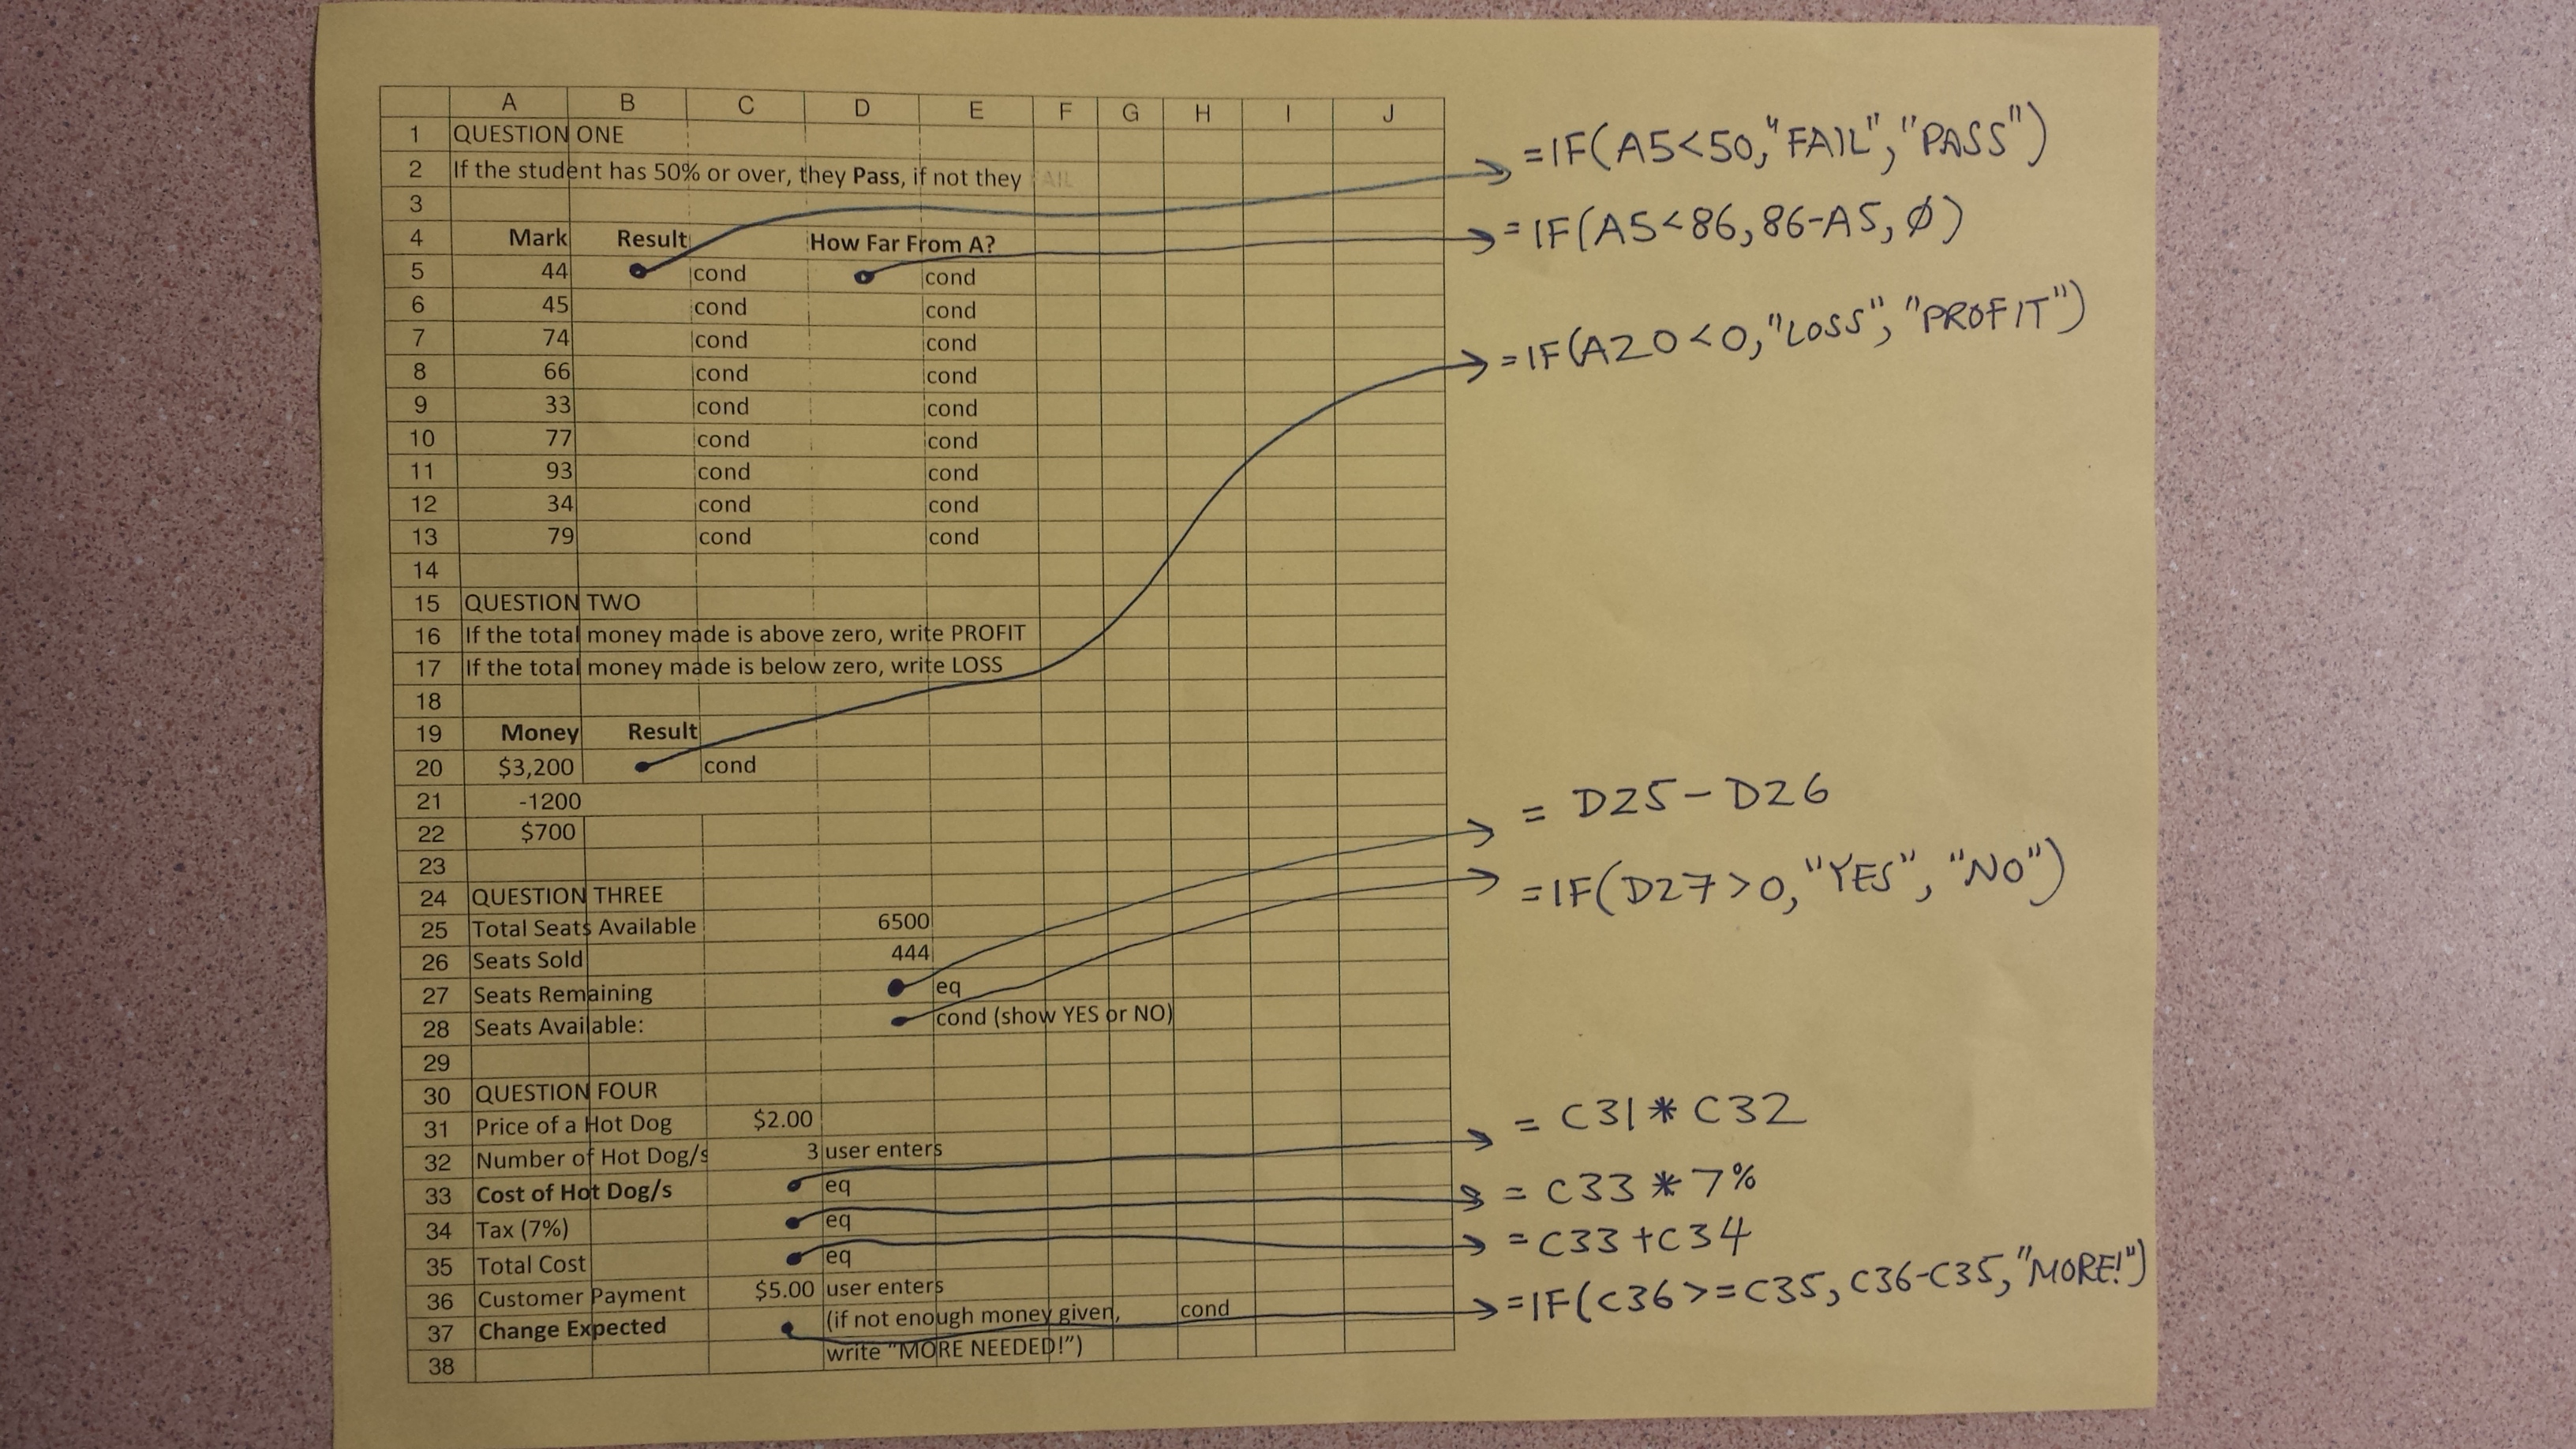 A B C D E F G H I J
1 QUESTION ONE
2 If the student has 50% or over, they Pass, if not they FAIL
3
4 Mark Result How Far From A?
5 44 cond cond
6 45 cond cond
7 74 cond cond
8 66 cond cond
9 33 cond cond
10 77 cond cond
11 93 cond cond
12 34 cond cond
13 79 cond cond
14
15 QUESTION TWO
16 If the total money made is above zero, write PROFIT
17 If the total money made is below zero, write LOSS
18
19 Money Result
20 $3,200 cond
21 -1200
22 $700
23
24 QUESTION THREE
25 Total Seats Available 6500
26 Seats Sold 444
27 Seats Remaining eq
28 Seats Available: cond (show YES or NO)
29
30 QUESTION FOUR
31 Price of a Hot Dog $2.00
32 Number of Hot Dog/s 3 user enters
33 Cost of Hot Dog/s eq
34 Tax (7%) eq
35 Total Cost eq
36 Customer Payment $5.00 user enters
37 Change Expected (if not enough money given, cond
38 write "MORE NEEDED!")
=IF(A5<50,"FAIL","PASS")
=IF(A5<86,86-A5,Ø)
=IF(A20<0,"LOSS","PROFIT")
= D25-D26
=IF(D27>0,"YES","NO")
= C31*C32
= C33*7%
=C33+C34
=IF(C36>=C35,C36-C35,"MORE!")